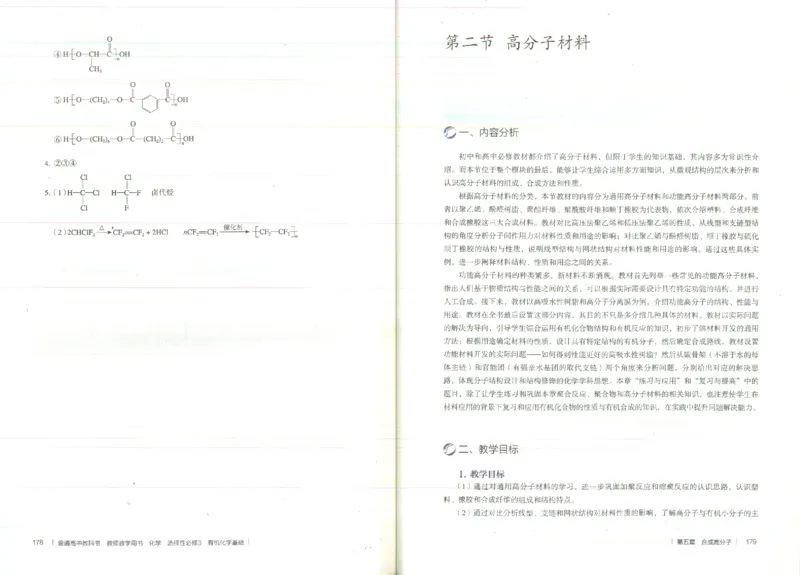 ④ H⁅O—CH—C⁆ₙOH
O
CH₃
⑤ H⁅O—(CH₂)₄—O—C—C⁆ₙOH
O O
⑥ H⁅O—(CH₂)₄—O—C—(CH₂)₂—C⁆ₙOH
O O
4. ②③④
Cl Cl
5. (1) H—C—Cl H—C—F 卤代烃
Cl F
(2) 2CHClF₂ △ CF₂=CF₂ + 2HCl nCF₂=CF₂ 催化剂 ⁅CF₂—CF₂⁆ₙ
178 普通高中教科书 教师教学用书 化学 选择性必修3 有机化学基础
第二节 高分子材料
一、内容分析
初中和高中必修教材都介绍了高分子材料，但限于学生的知识基础，其内容多为常识性介
绍。而本节位于整个模块的最后，能够让学生综合运用多方面知识，从微观结构的层次来分析和
认识高分子材料的组成、合成方法和性质。
根据高分子材料的分类，本节教材的内容分为通用高分子材料和功能高分子材料两部分。前
者以聚乙烯、酚醛树脂、聚酯纤维、聚酰胺纤维和顺丁橡胶为代表物，依次介绍塑料、合成纤维
和合成橡胶这一三大合成材料。教材对比高压法聚乙烯和低压法聚乙烯的性质，从线型和支链型结
构的角度分析分子间作用力对材料性质和用途的影响；对比聚乙烯与酚醛树脂、顺丁橡胶与硫化
顺丁橡胶的结构与性质，说明线型结构与网状结构对材料性能和用途的影响。通过这些具体实
例，进一步阐释材料结构、性质和用途之间的关系。
功能高分子材料的种类繁多，新材料不断涌现。教材首先列举一些常见的功能高分子材料，
指出人们基于物质结构与性能之间的关系，可以根据实际需要设计具有特定功能的结构，并进行
人工合成。接下来，教材以高吸水性树脂和高分子分离膜为例，介绍功能高分子的结构、性能与
用途。教材在全书最后设置这部分内容，其目的不只是多介绍几种具体的材料。教材以实际问题
的解决为导向，引导学生综合运用有机化合物结构和有机反应的知识，初步了解材料开发的通用
方法：根据用途确定材料的性质，设计具有特定结构的有机分子，然后确定合成路线。教材设置
功能材料开发的实际问题——如何得到性能更好的高吸水性树脂？然后从碳骨架（不溶于水的母
体主链）和官能团（有强亲水基团的取代支链）两个角度来分析问题，分别给出对应的解决思
路，体现分子结构设计和结构修饰的化学学科思想。本章“练习与应用”和“复习与提高”中的
题目，除了让学生练习和巩固本章聚合反应、聚合物和高分子材料的相关知识，也注意使学生在
材料应用的背景下复习和应用有机化合物的性质与有机合成的知识，在实践中提升问题解决能力。
二、教学目标
1. 教学目标
（1）通过对通用高分子材料的学习，进一步巩固加聚反应和缩聚反应的认识思路，认识塑
料、橡胶和合成纤维的组成和结构特点。
（2）通过对比分析线型、支链和网状结构对材料性质的影响，了解高分子与有机小分子的主
第五章 合成高分子 179